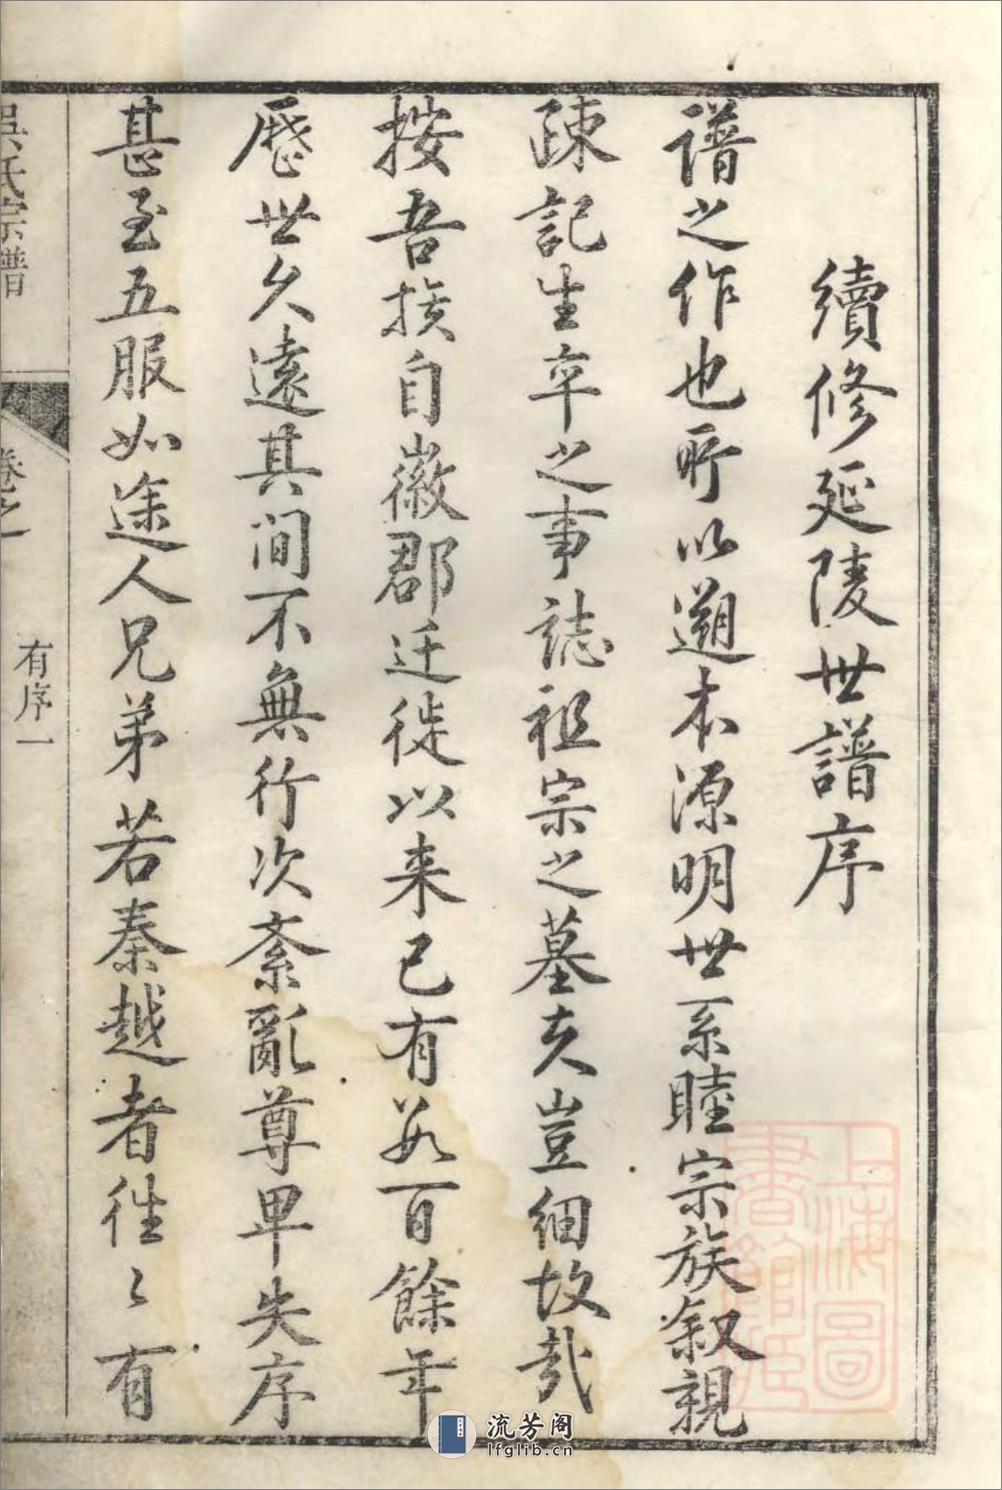 續修延陵世譜序
譜之作也所以遡本源明世系睦宗族叙親
疎記生卒之事誌祖宗之墓夫豈細故哉
按吾族自徽郡迁徙以来已有数百餘年
歷世久遠其间不無行次紊亂尊卑失序
甚至五服如途人兄弟若秦越者往〻有
吳氏宗譜
卷之一
有序一
上海圖
書館藏
流芳阁
lfglib.cn